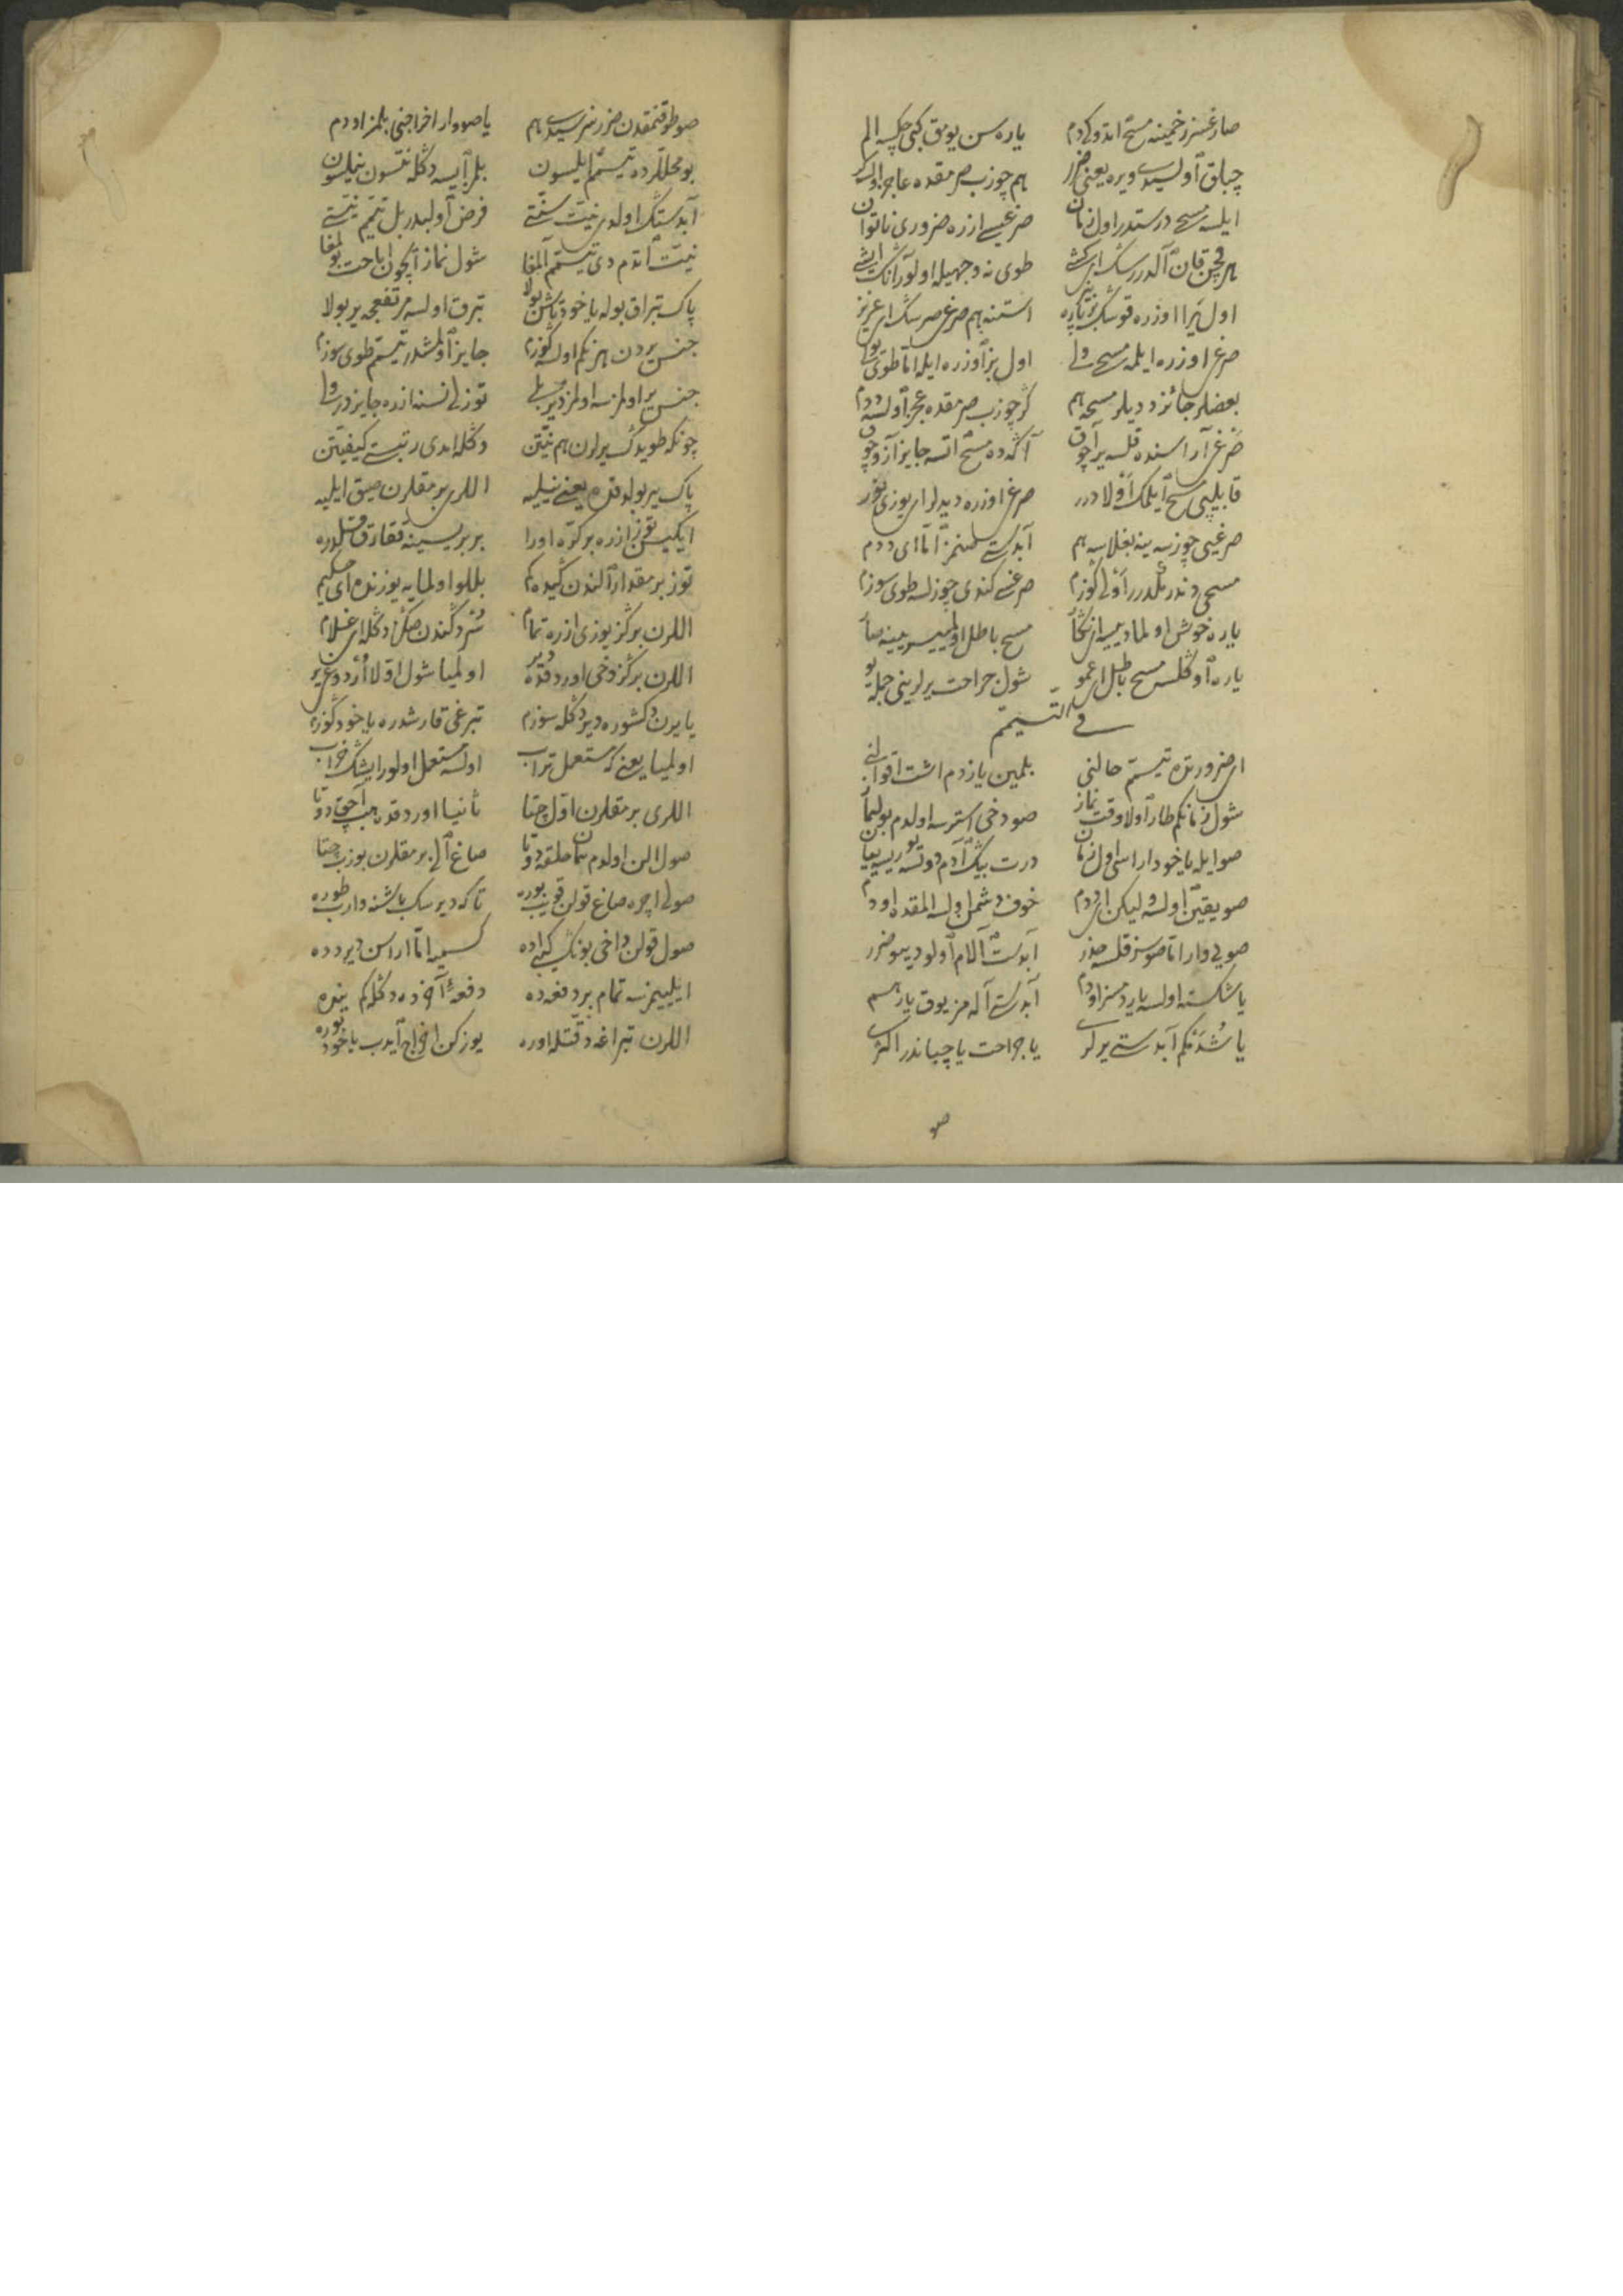 صارغسز زخمینه مسح اتدوکی دم یاره سن یومق کبی چکسه الم
چبلق اولیسدی ویره یعنی ضرر هم چوزب صرمقده عاجز اولسلر
ایلسه مسح درستدر اول زمان صرغیسی ازره ضروری ناتوان
هر قچن قان آلدررسک ای کشی طوی نه وجهیله اولور انک ایشی
اول یرا اوزره قوسک بز پاره استنه هم صرغی صرسک ای عزیز
صرغی اوزره ایلمه مسحی ولی اول بز اوزره ایله اتا طوتی
بعضلر جائزد دیلر مسحه هم کر چوزب صرمقده عجز اولسه ددم
صرغی آراسنده قلسه یر آچوق آکه ده مسح اتسه جایز آز و چوق
قابلیچی مسح ایلمک اولادر صرغی اوزره دیدلر ای یوزی نور
صرغیی چوزسه ینه بغلاسه هم آبدستی سلنمز اتا ای ددم
مسحی دندرمکدر اولی کوزم صرغی کندی چوزلسه طوی سوزم
یاره خوش اولمادیسه از نکا مسح باطل اولمییسر ینه صا
یاره اوکلسه مسح باطل ای عمو شول جراحت یرلرینی جمله یو
فی التیمم
ای ضرورتده تیمم حالنی بلمین یازدم اشت اقوالنی
شول زمانکم طار اولا وقت نماز صو دخی استرسه اولدم بولماز
صو ایله یا خود اراسی اول زمان درت بیک آدم
صو یقین اولسه ولیکن ای ددم خوف دشمن اولسه المقده اودم
صویی وار اتا صوسز قلسه حذر آبدست آلام اولو دیبو ضرر
یا شکسته اولسه یاردمسز اودم آبدستی آله مز یوق یار هم
یا شدنکم آبدستی یرلری یا جراحت یا چباندر اکثری
صو
صو طوقنمقدن ضرر ایرسیدی هم یا صو وار اخراجنی بلمز اودم
بو محللرده تیمم ایلسون بلمز ایسه دکله نتسون نیلسون
آبدستک اولدی نیت سنتی فرض اولبدر بل تیمم نیتی
نیت اتدم دی تیمم آلمغا شول نماز ایچون اباحت بولمغا
پاک تبراق بوله یا خود طاش بولا تبرق اولسه مرتفعجه یر بولا
جنس یردن هر نکم اولسه کوزم جایز اولمشدر تیمم طوی سوزم
جنس یر اولمزسه اولمز دیر بلی توزلی نسنه ازده جایزدر ولی
چونکه طویدک یرلرن هم نیتن دکله امدی رتبتی کیفیتن
پاک یر بولدقده یعنی نیلیه اللری برمقلرن صیق ایلیه
ایکیسی توز ازره بر کره اورا بربریسینه
توز بر مقدار الندن کیده کم بللو اولمایه یوزنده ای حکیم
اللرن بر کز یوزی ازره تمام سرد کندن صکره دکله ای غلام
اللرن بر کز دخی اوردقده یر اولمیا شول اولا اوردوغی یر
یا یرن دکشوره دیر دکله سوزم تبرغی قارشدره یا خود کوزم
اولمیا یعنی که مستعمل تراب اولسه مستعمل اولور ایشک خراب
اللری برمقلرن اول چتا ثانیا اوردقده هب آچق دوتا
صول الن اولدم حلقه دوتا صاغ الی برمقلرن بوزب چتا
صولی اچره صاغ قولن قویب بوره تا که دیرسک باشنه وارب طوره
صول قولن داخی بونک کبی اده کسمیه اتا اراسن یرده ده
ایلییمزسه تمام بر دفعه ده دفعهٔ آخر ده دکله کم ینده
اللرن تبراغه دقتله اوره یوز کن اخراج ایدب یا خود بوره